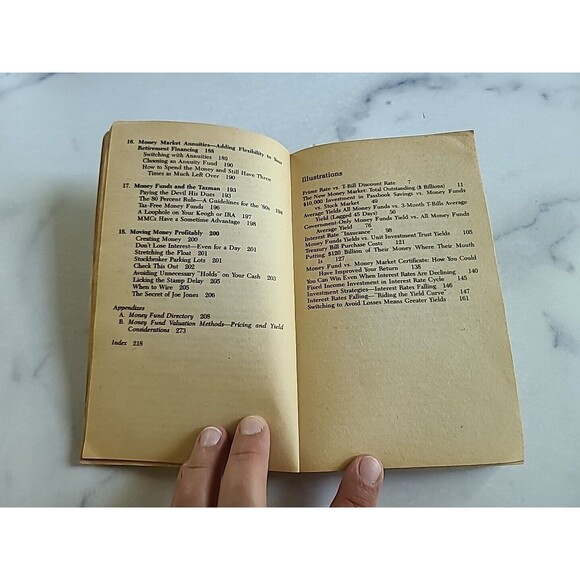 16. Money Market Annuities—Adding Flexibility to Your
Retirement Financing 188
Switching with Annuities 189
Choosing an Annuity Fund 190
How to Spend the Money and Still Have Three
Times as Much Left Over 190
17. Money Funds and the Taxman 193
Paying the Devil His Dues 193
The 80 Percent Rule—A Guidelines for the '80s 194
Tax-Free Money Funds 196
A Loophole on Your Keogh or IRA 197
MMCs Have a Sometime Advantage 198
18. Moving Money Profitably 200
Creating Money 200
Don't Lose Interest—Even for a Day 201
Stretching the Float 201
Stockbroker Parking Lots 202
Check This Out 202
Avoiding Unnecessary "Holds" on Your Cash 203
Licking the Stamp Delay 205
When to Wire 205
The Secret of Joe Jones 206
Appendixes
A. Money Fund Directory 208
B. Money Fund Valuation Methods—Pricing and Yield
Considerations 273
Index 218
Illustrations
Prime Rate vs. T-Bill Discount Rate 7
The New Money Market: Total Outstanding ($ Billions) 11
$10,000 Investment in Passbook Savings vs. Money Funds
vs. Stock Market 49
Average Yields All Money Funds vs. 3-Month T-Bills Average
Yield (Lagged 45 Days) 56
Government-Only Money Funds Yield vs. All Money Funds
Average Yield 76
Interest Rate "Insurance" 98
Money Funds Yields vs. Unit Investment Trust Yields 105
Treasury Bill Purchase Costs 121
Putting $120 Billion of Their Money Where Their Mouth
Is 127
Money Fund vs. Money Market Certificate: How You Could
Have Improved Your Return 138
You Can Win Even When Interest Rates Are Declining 140
Fixed Income Investment in Interest Rate Cycle 145
Investment Strategies—Interest Rates Falling 146
Interest Rates Falling—"Riding the Yield Curve" 147
Switching to Avoid Losses Means Greater Yields 161